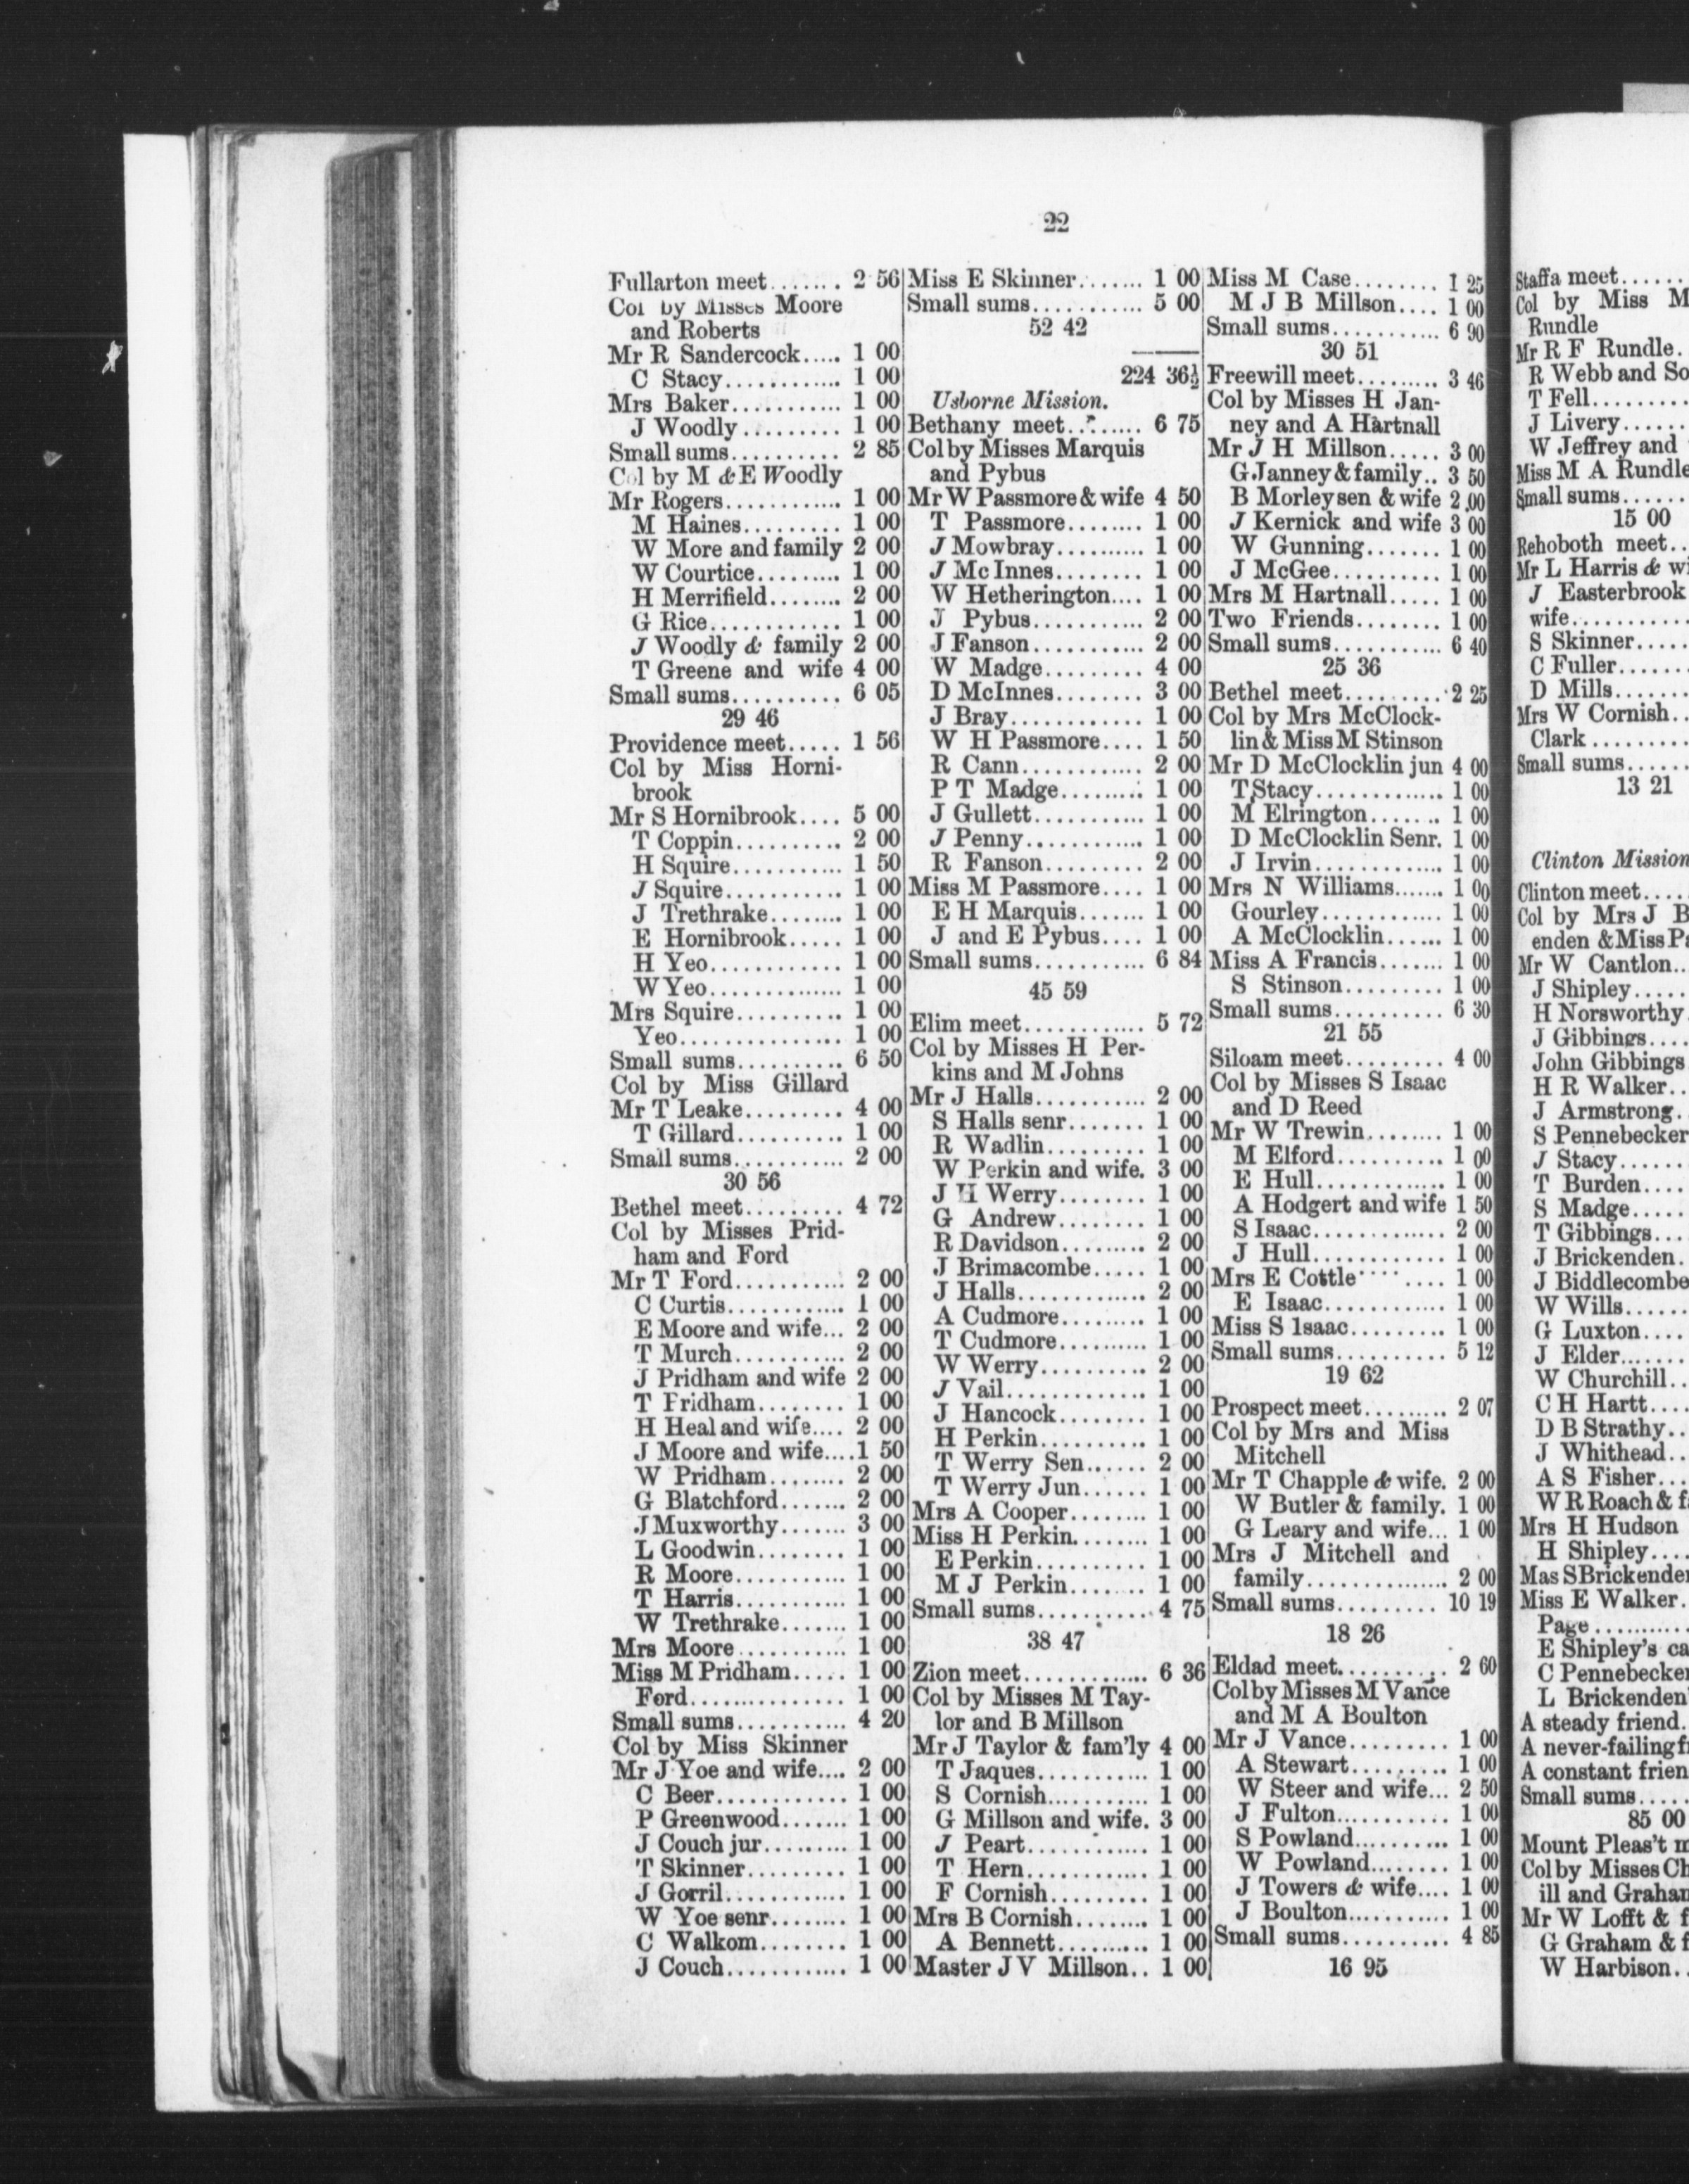 22
Fullarton meet....... 2 56
Col by Misses Moore
and Roberts
Mr R Sandercock..... 1 00
C Stacy............ 1 00
Mrs Baker........... 1 00
J Woodly.......... 1 00
Small sums.......... 2 85
Col by M & E Woodly
Mr Rogers............ 1 00
M Haines.......... 1 00
W More and family 2 00
W Courtice......... 1 00
H Merrifield........ 2 00
G Rice............ 1 00
J Woodly & family 2 00
T Greene and wife 4 00
Small sums.......... 6 05
29 46
Providence meet..... 1 56
Col by Miss Horni-
brook
Mr S Hornibrook.... 5 00
T Coppin.......... 2 00
H Squire........... 1 50
J Squire........... 1 00
J Trethrake........ 1 00
E Hornibrook..... 1 00
H Yeo............ 1 00
W Yeo.............. 1 00
Mrs Squire.......... 1 00
Yeo............... 1 00
Small sums.......... 6 50
Col by Miss Gillard
Mr T Leake......... 4 00
T Gillard.......... 1 00
Small sums........... 2 00
30 56
Bethel meet......... 4 72
Col by Misses Prid-
ham and Ford
Mr T Ford........... 2 00
C Curtis............ 1 00
E Moore and wife... 2 00
T Murch........... 2 00
J Pridham and wife 2 00
T Fridham........ 1 00
H Heal and wife.... 2 00
J Moore and wife....1 50
W Pridham........ 2 00
G Blatchford....... 2 00
J Muxworthy....... 3 00
L Goodwin........ 1 00
R Moore........... 1 00
T Harris........... 1 00
W Trethrake....... 1 00
Mrs Moore........... 1 00
Miss M Pridham..... 1 00
Ford............... 1 00
Small sums........... 4 20
Col by Miss Skinner
Mr J Yoe and wife.... 2 00
C Beer............. 1 00
P Greenwood....... 1 00
J Couch jur......... 1 00
T Skinner.......... 1 00
J Gorril............ 1 00
W Yoe senr........ 1 00
C Walkom........ 1 00
J Couch............ 1 00
Miss E Skinner....... 1 00
Small sums........... 5 00
52 42
224 36½
Usborne Mission.
Bethany meet........ 6 75
Col by Misses Marquis
and Pybus
Mr W Passmore & wife 4 50
T Passmore........ 1 00
J Mowbray.......... 1 00
J Mc Innes........ 1 00
W Hetherington.... 1 00
J Pybus........... 2 00
J Fanson........... 2 00
W Madge.......... 4 00
D McInnes......... 3 00
J Bray............. 1 00
W H Passmore.... 1 50
R Cann............ 2 00
P T Madge......... 1 00
J Gullett........... 1 00
J Penny............ 1 00
R Fanson.......... 2 00
Miss M Passmore.... 1 00
E H Marquis....... 1 00
J and E Pybus.... 1 00
Small sums........... 6 84
45 59
Elim meet............ 5 72
Col by Misses H Per-
kins and M Johns
Mr J Halls........... 2 00
S Halls senr....... 1 00
R Wadlin.......... 1 00
W Perkin and wife. 3 00
J H Werry........ 1 00
G Andrew........ 1 00
R Davidson......... 2 00
J Brimacombe..... 1 00
J Halls............. 2 00
A Cudmore......... 1 00
T Cudmore.......... 1 00
W Werry........... 2 00
J Vail.............. 1 00
J Hancock........ 1 00
H Perkin.......... 1 00
T Werry Sen...... 2 00
T Werry Jun...... 1 00
Mrs A Cooper........ 1 00
Miss H Perkin........ 1 00
E Perkin........... 1 00
M J Perkin....... 1 00
Small sums........... 4 75
38 47
Zion meet............. 6 36
Col by Misses M Tay-
lor and B Millson
Mr J Taylor & fam'ly 4 00
T Jaques........... 1 00
S Cornish.......... 1 00
G Millson and wife. 3 00
J Peart............ 1 00
T Hern............ 1 00
F Cornish.......... 1 00
Mrs B Cornish........ 1 00
A Bennett.......... 1 00
Master J V Millson.. 1 00
Miss M Case......... 1 25
M J B Millson.... 1 00
Small sums.......... 6 90
30 51
Freewill meet......... 3 46
Col by Misses H Jan-
ney and A Hartnall
Mr J H Millson..... 3 00
G Janney & family.. 3 50
B Morley sen & wife 2 00
J Kernick and wife 3 00
W Gunning....... 1 00
J McGee........... 1 00
Mrs M Hartnall..... 1 00
Two Friends........ 1 00
Small sums........... 6 40
25 36
Bethel meet.......... 2 25
Col by Mrs McClock-
lin & Miss M Stinson
Mr D McClocklin jun 4 00
T Stacy............. 1 00
M Elrington....... 1 00
D McClocklin Senr. 1 00
J Irvin............. 1 00
Mrs N Williams....... 1 00
Gourley............ 1 00
A McClocklin...... 1 00
Miss A Francis....... 1 00
S Stinson.......... 1 00
Small sums.......... 6 30
21 55
Siloam meet.......... 4 00
Col by Misses S Isaac
and D Reed
Mr W Trewin........ 1 00
M Elford........... 1 00
E Hull............. 1 00
A Hodgert and wife 1 50
S Isaac............. 2 00
J Hull............. 1 00
Mrs E Cottle........ 1 00
E Isaac............ 1 00
Miss S Isaac......... 1 00
Small sums.......... 5 12
19 62
Prospect meet......... 2 07
Col by Mrs and Miss
Mitchell
Mr T Chapple & wife. 2 00
W Butler & family. 1 00
G Leary and wife... 1 00
Mrs J Mitchell and
family............... 2 00
Small sums......... 10 19
18 26
Eldad meet.......... 2 60
Col by Misses M Vance
and M A Boulton
Mr J Vance.......... 1 00
A Stewart.......... 1 00
W Steer and wife... 2 50
J Fulton........... 1 00
S Powland.......... 1 00
W Powland........ 1 00
J Towers & wife.... 1 00
J Boulton........... 1 00
Small sums.......... 4 85
16 95
Staffa meet......
Col by Miss M
Rundle
Mr R F Rundle.
R Webb and So
T Fell..........
J Livery......
W Jeffrey and
Miss M A Rundle
Small sums......
15 00
Rehoboth meet..
Mr L Harris & wi
J Easterbrook
wife...........
S Skinner.....
C Fuller.......
D Mills.......
Mrs W Cornish..
Clark.........
Small sums......
13 21
Clinton Mission
Clinton meet....
Col by Mrs J B
enden & Miss Pa
Mr W Cantlon..
J Shipley.....
H Norsworthy
J Gibbings....
John Gibbings
H R Walker..
J Armstrong.
S Pennebecker
J Stacy......
T Burden....
S Madge.....
T Gibbings...
J Brickenden.
J Biddlecombe
W Wills......
G Luxton....
J Elder.......
W Churchill..
C H Hartt....
D B Strathy..
J Whithead..
A S Fisher...
W R Roach & f
Mrs H Hudson
H Shipley....
Mas S Brickenden
Miss E Walker.
Page..........
E Shipley's ca
C Pennebecker
L Brickenden'
A steady friend.
A never-failing f
A constant frien
Small sums.....
85 00
Mount Pleas't m
Col by Misses Ch
ill and Graham
Mr W Lofft & f
G Graham & f
W Harbison..